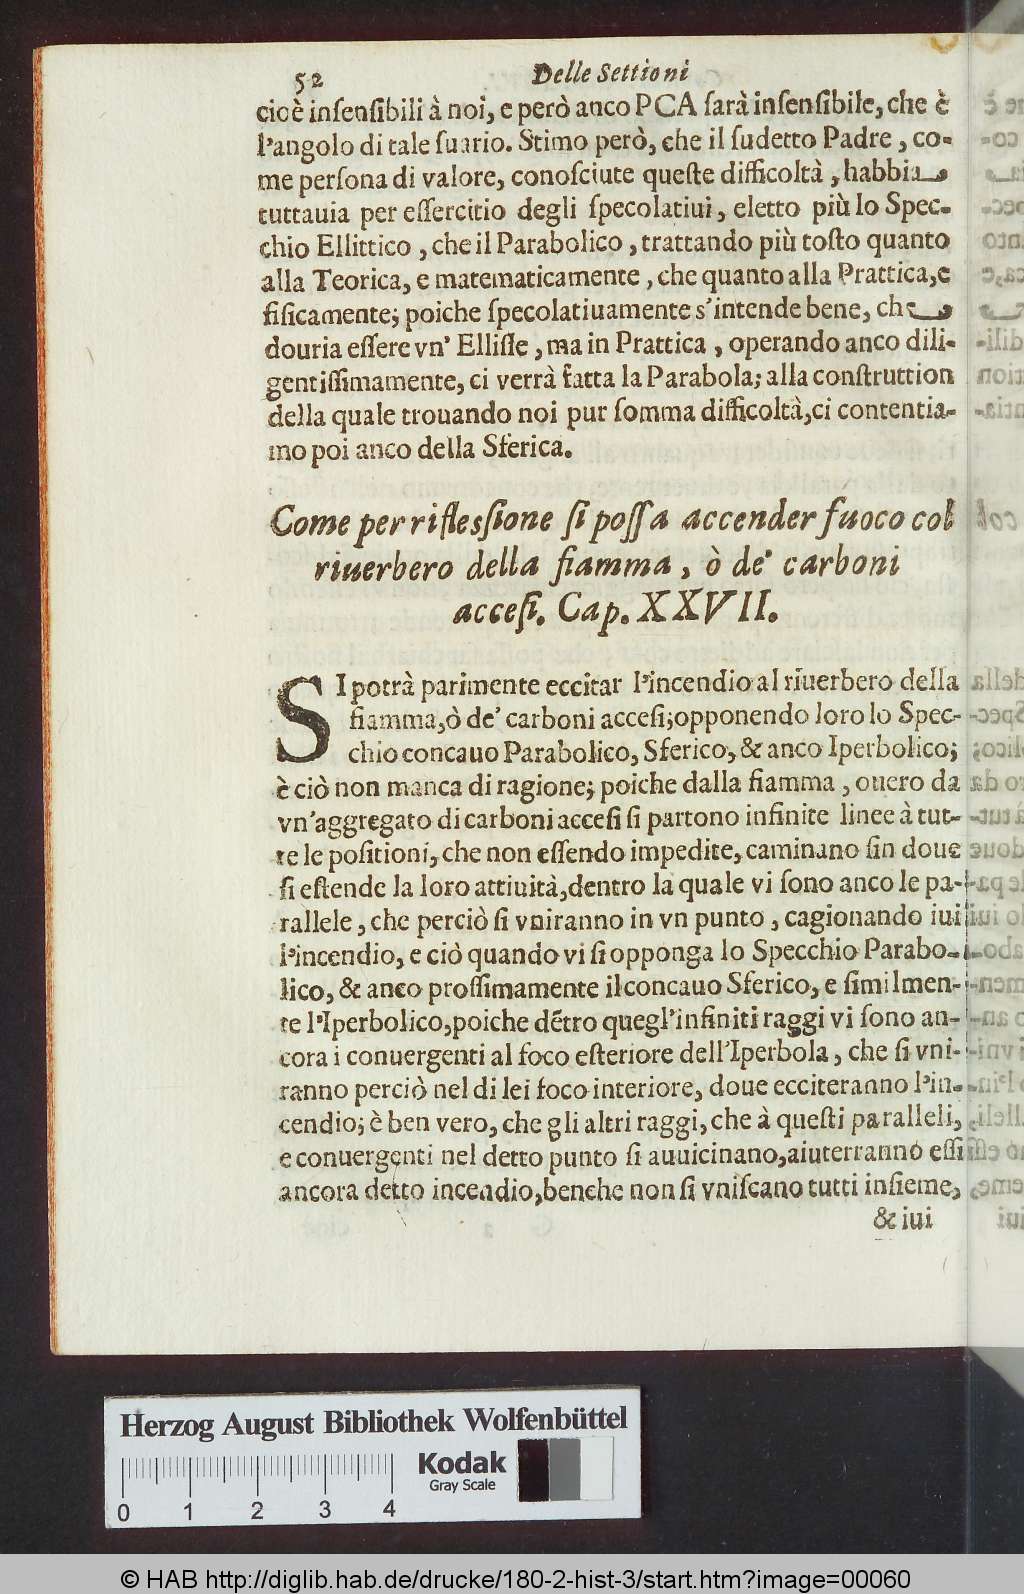 52 Delle Settioni
cioè inſenſibili à noi, e però anco PCA ſarà inſenſibile, che è
l'angolo di tale ſuario. Stimo però, che il ſudetto Padre, co-
me perſona di valore, conoſciute queſte difficoltà, habbia
tuttauia per eſſercitio degli ſpecolatiui, eletto più lo Spec-
chio Ellittico, che il Parabolico, trattando più toſto quanto
alla Teorica, e matematicamente, che quanto alla Prattica, e
fiſicamente; poiche ſpecolatiuamente s'intende bene, che
douria eſſere vn' Elliſſe, ma in Prattica, operando anco dili-
gentiſſimamente, ci verrà fatta la Parabola; alla conſtruttion
della quale trouando noi pur ſomma difficoltà, ci contentia-
mo poi anco della Sferica.
Come per rifleſſione ſi poſſa accender fuoco col
riuerbero della fiamma, ò de' carboni
acceſi. Cap. XXVII.
SI potrà parimente eccitar l'incendio al riuerbero della
fiamma, ò de' carboni acceſi; opponendo loro lo Spec-
chio concauo Parabolico, Sferico, & anco Iperbolico;
è ciò non manca di ragione; poiche dalla fiamma, ouero da
vn'aggregato di carboni acceſi ſi partono infinite linee à tut-
te le poſitioni, che non eſſendo impedite, caminano ſin doue
ſi eſtende la loro attiuità, dentro la quale vi ſono anco le pa-
rallele, che perciò ſi vniranno in vn punto, cagionando iui
l'incendio, e ciò quando vi ſi opponga lo Specchio Parabo-
lico, & anco proſſimamente il concauo Sferico, e ſimilmen-
te l'Iperbolico, poiche dẽtro quegl'infiniti raggi vi ſono an-
cora i conuergenti al foco eſteriore dell'Iperbola, che ſi vni-
ranno perciò nel di lei foco interiore, doue ecciteranno l'in-
cendio; è ben vero, che gli altri raggi, che à queſti paralleli,
e conuergenti nel detto punto ſi auuicinano, aiuterranno eſſi
ancora detto incendio, benche non ſi vniſcano tutti inſieme,
& iui
Herzog August Bibliothek Wolfenbüttel
Kodak
Gray Scale
0 1 2 3 4
© HAB http://diglib.hab.de/drucke/180-2-hist-3/start.htm?image=00060